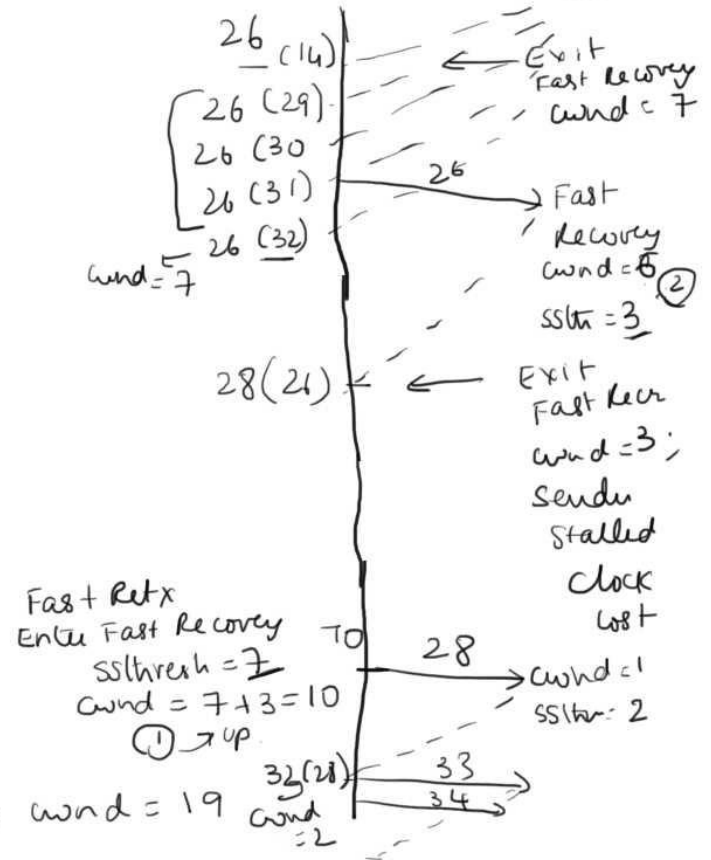 26 (14)
Exit
Fast Recovery
cwnd = 7
26 (29)
26 (30
26 (31)
26
26 (32)
cwnd = 7
Fast
Recovery
cwnd =
2
ssth = 3
28 (26)
Exit
Fast Recr
cwnd = 3;
Sender
Stalled
Clock
lost
Fast Retx
Enter Fast Recovery
ssthresh = 7
cwnd = 7+3=10
1 → up
TO
28
cwnd = 1
ssthr = 2
cwnd = 19
(28)
cwnd
= 2
33
34